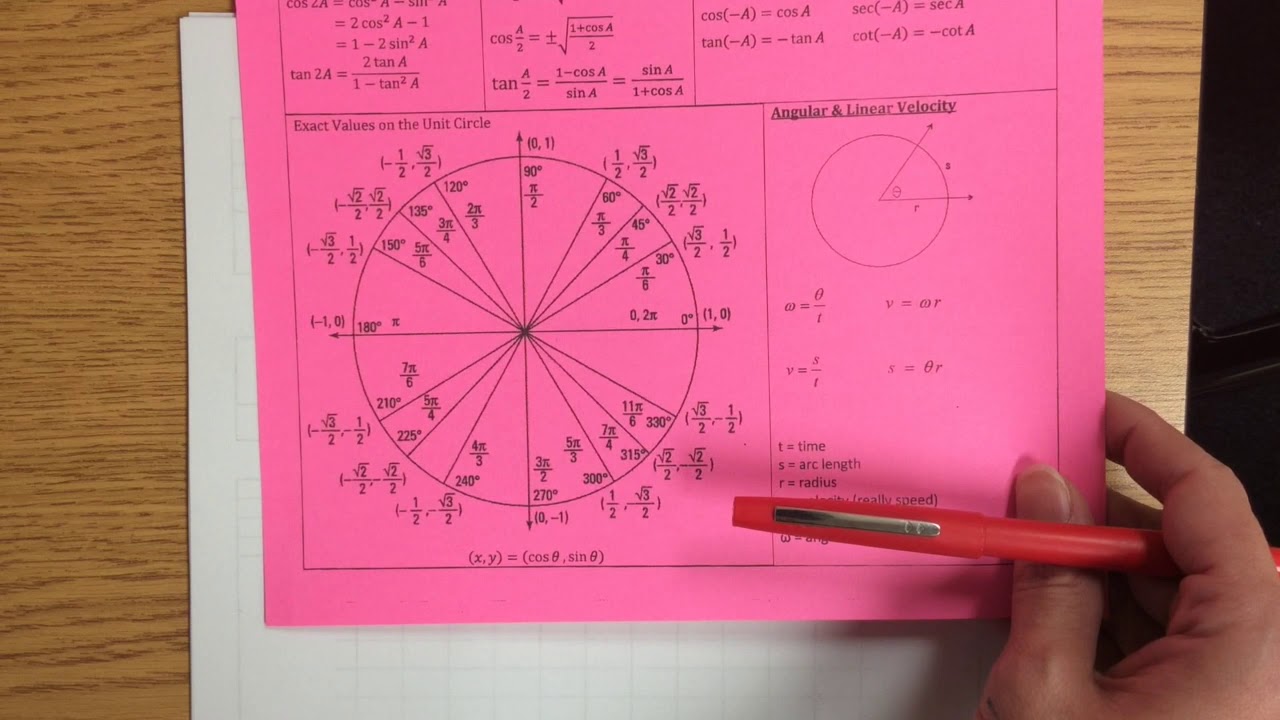 cos 2A = cos² A − sin² A
= 2 cos² A − 1
= 1 − 2 sin² A
tan 2A = 2 tan A / 1 − tan² A
cos A/2 = ±√(1+cosA / 2)
tan A/2 = 1−cos A / sin A = sin A / 1+cos A
cos(−A) = cos A sec(−A) = sec A
tan(−A) = − tan A cot(−A) = −cot A
Exact Values on the Unit Circle
(0, 1)
90° π/2
(1/2, √3/2) 60° π/3
(√2/2, √2/2) 45° π/4
(√3/2, 1/2) 30° π/6
(1, 0) 0° 0, 2π
(−1/2, √3/2) 120° 2π/3
(−√2/2, √2/2) 135° 3π/4
(−√3/2, 1/2) 150° 5π/6
(−1, 0) 180° π
(−√3/2, −1/2) 210° 7π/6
(−√2/2, −√2/2) 225° 5π/4
(−1/2, −√3/2) 240° 4π/3
(0, −1) 270° 3π/2
(1/2, −√3/2) 300° 5π/3
(√2/2, −√2/2) 315° 7π/4
(√3/2, −1/2) 330° 11π/6
(x, y) = (cos θ , sin θ)
Angular & Linear Velocity
s
θ
r
ω = θ/t v = ω r
v = s/t s = θ r
t = time
s = arc length
r = radius
(really speed)
ω =